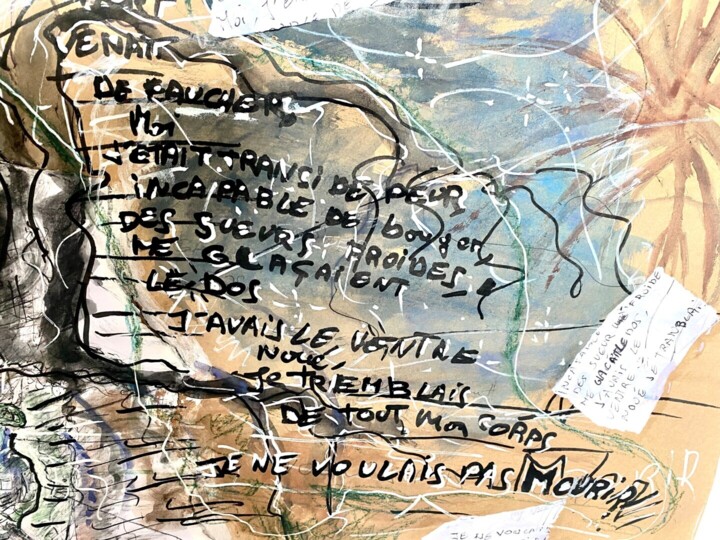 VENAIT
DE FAUCHER,
Moi
J'ETAIT TRANSI DE PEUR
INCAPABLE DE bouger,
DES SUEURS FROIDES
ME GLAÇAIENT
LE DOS
J'AVAIS LE VENTRE
NOUÉ,
JE TREMBLAIS
DE TOUT MON CORPS
JE NE VOULAIS PAS MOURIR
ME GLACAIT LE DOS,
J'AVAIS LE
VENTRE
NOUÉ JE TREMBLAI
JE NE VOULAI